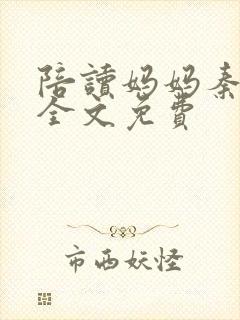 陪讀妈妈秦
全文免費
市西妖怪